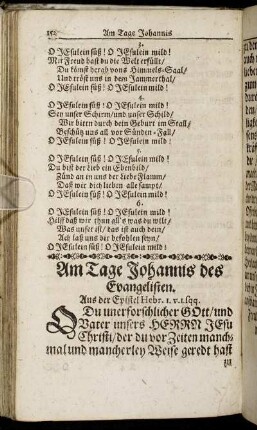 152 Am Tage Johannis
3.
O JEsulein süß! O JEsulein mild!
Mit Freud hast du die Welt erfüllt/
Du kömst herab vons Himmels-Saal/
Und tröst uns in dem Jammerthal/
O JEsulein süß! O JEsulein mild!
4.
O JEsulein süß! O JEsulein mild!
Sey unser Schirm/und unser Schild/
Wir bitten durch dein Geburt im Stall/
Beschütz uns all vor Sünden-Fall/
O JEsulein süß! O JEsulein mild!
5.
O JEsulein süß! O JEsulein mild!
Du bist der Lieb ein Ebenbild/
Zünd an in uns der Liebe Flamm/
Daß wir dich lieben alle sampt/
O JEsulein süß! O JEsulein mild!
6.
O JEsulein süß! O JEsulein mild!
Hilff daß wir thun alls was du wilt/
Was unser ist/das ist auch dein/
Ach laß uns dir befohlen seyn/
O JEsulein süß! O JEsulein mild!
Am Tage Johannis des
Evangelisten.
Aus der Epistel Hebr. 1. v. 1. sqq.
O Du unerforschlicher GOtt/und
Vater unsers HERRN JEsu
Christi/der du vor Zeiten manch-
mal und mancherley Weise geredt hast
zu